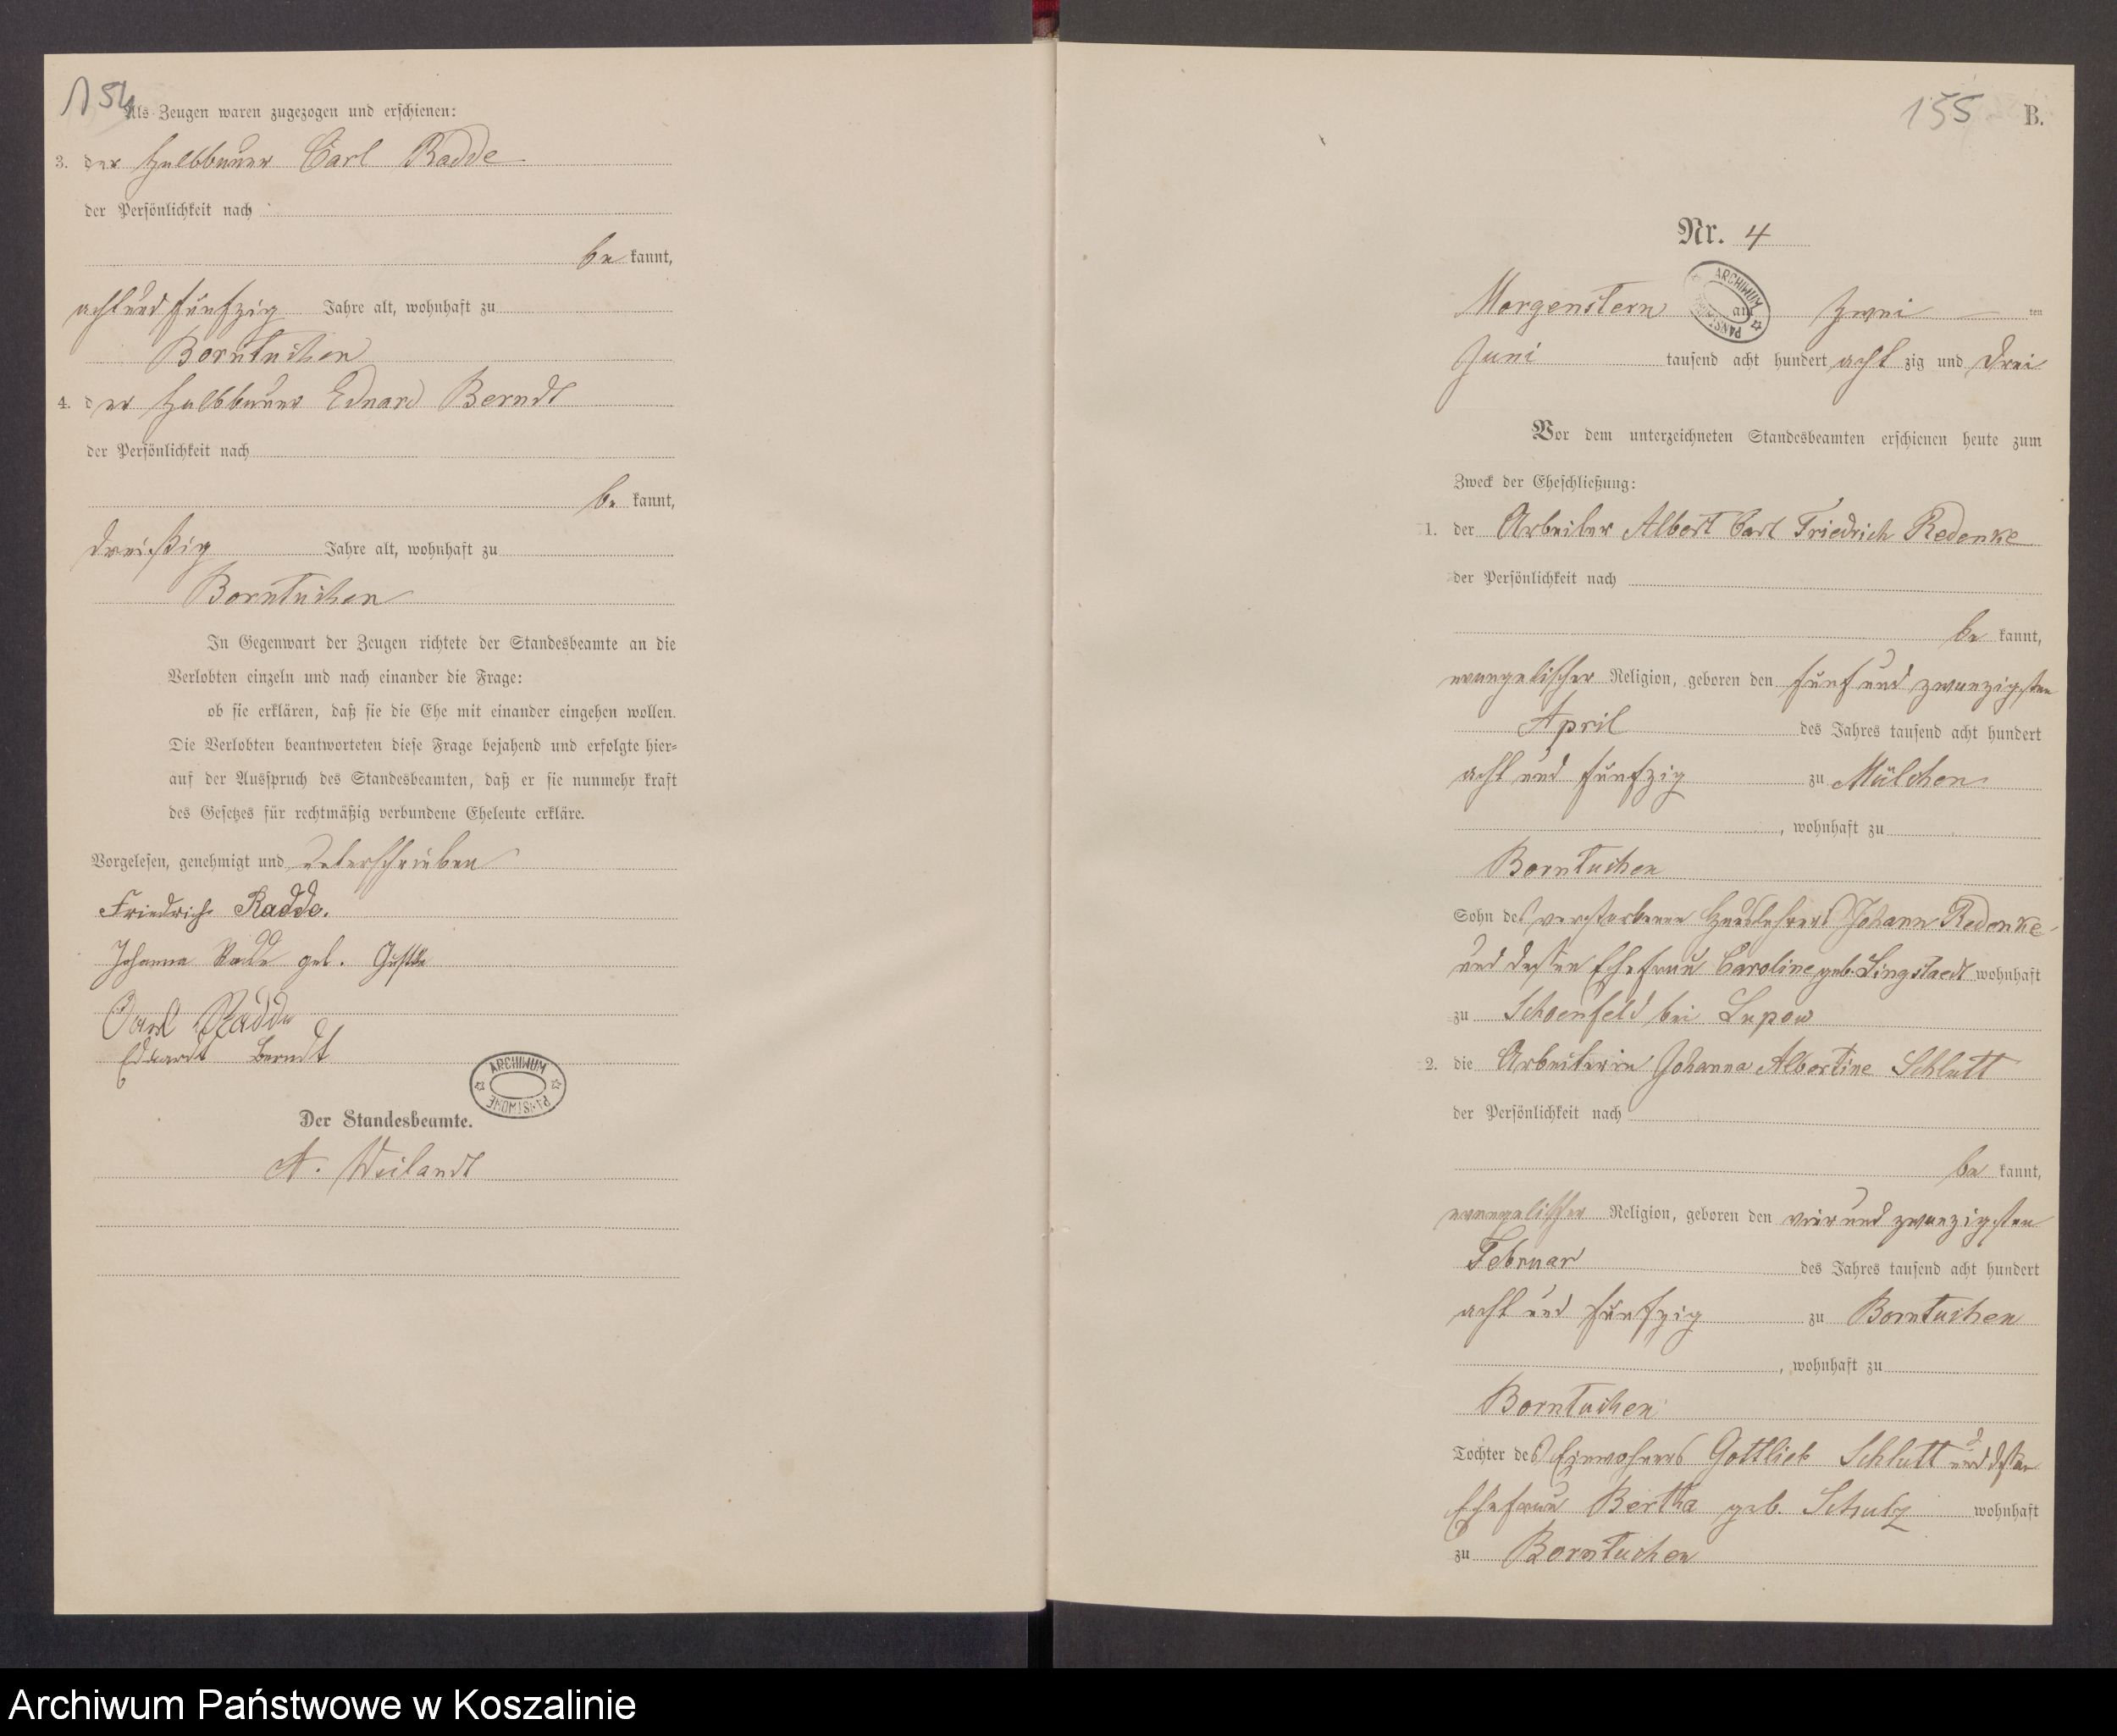 154
Als Zeugen waren zugezogen und erschienen:
3. der Halbbauer Carl Radde
der Persönlichkeit nach
be kannt,
acht und fünfzig Jahre alt, wohnhaft zu
Borntuchen
4. der Halbbauer Eduard Berndt
der Persönlichkeit nach
be kannt,
dreißig Jahre alt, wohnhaft zu
Borntuchen
In Gegenwart der Zeugen richtete der Standesbeamte an die
Verlobten einzeln und nach einander die Frage:
ob sie erklären, daß sie die Ehe mit einander eingehen wollen.
Die Verlobten beantworteten diese Frage bejahend und erfolgte hier=
auf der Ausspruch des Standesbeamten, daß er sie nunmehr kraft
des Gesetzes für rechtmäßig verbundene Eheleute erkläre.
Vorgelesen, genehmigt und unterschrieben
Friedrich Radde.
Johanna Radde geb.
Carl Radde
Eduardt Berndt
ARCHIWUM PAŃSTWOWE
Der Standesbeamte.
A. Weilandt
155 B.
Nr. 4
Morgenstern am zwei ten
ARCHIWUM PAŃSTWOWE
Juni tausend acht hundert acht zig und drei
Vor dem unterzeichneten Standesbeamten erschienen heute zum
Zweck der Eheschließung:
1. der Arbeiter Albert Carl Friedrich Redenke
der Persönlichkeit nach
be kannt,
evangelischer Religion, geboren den fünf und zwanzigsten
April des Jahres tausend acht hundert
acht und fünfzig zu Mülchen
, wohnhaft zu
Borntuchen
Sohn des verstorbenen Hauslehrers Johann Redenke
und dessen Ehefrau Caroline geb. Lingstaedt wohnhaft
zu Schoenfeld bei Lupow
2. die Arbeiterin Johanna Albertine Schlutt
der Persönlichkeit nach
be kannt,
evangelischer Religion, geboren den vier und zwanzigsten
Februar des Jahres tausend acht hundert
acht und fünfzig zu Borntuchen
, wohnhaft zu
Borntuchen
Tochter des Einwohners Gottlieb Schlutt und dessen
Ehefrau Bertha geb. Schulz wohnhaft
zu Borntuchen
Archiwum Państwowe w Koszalinie